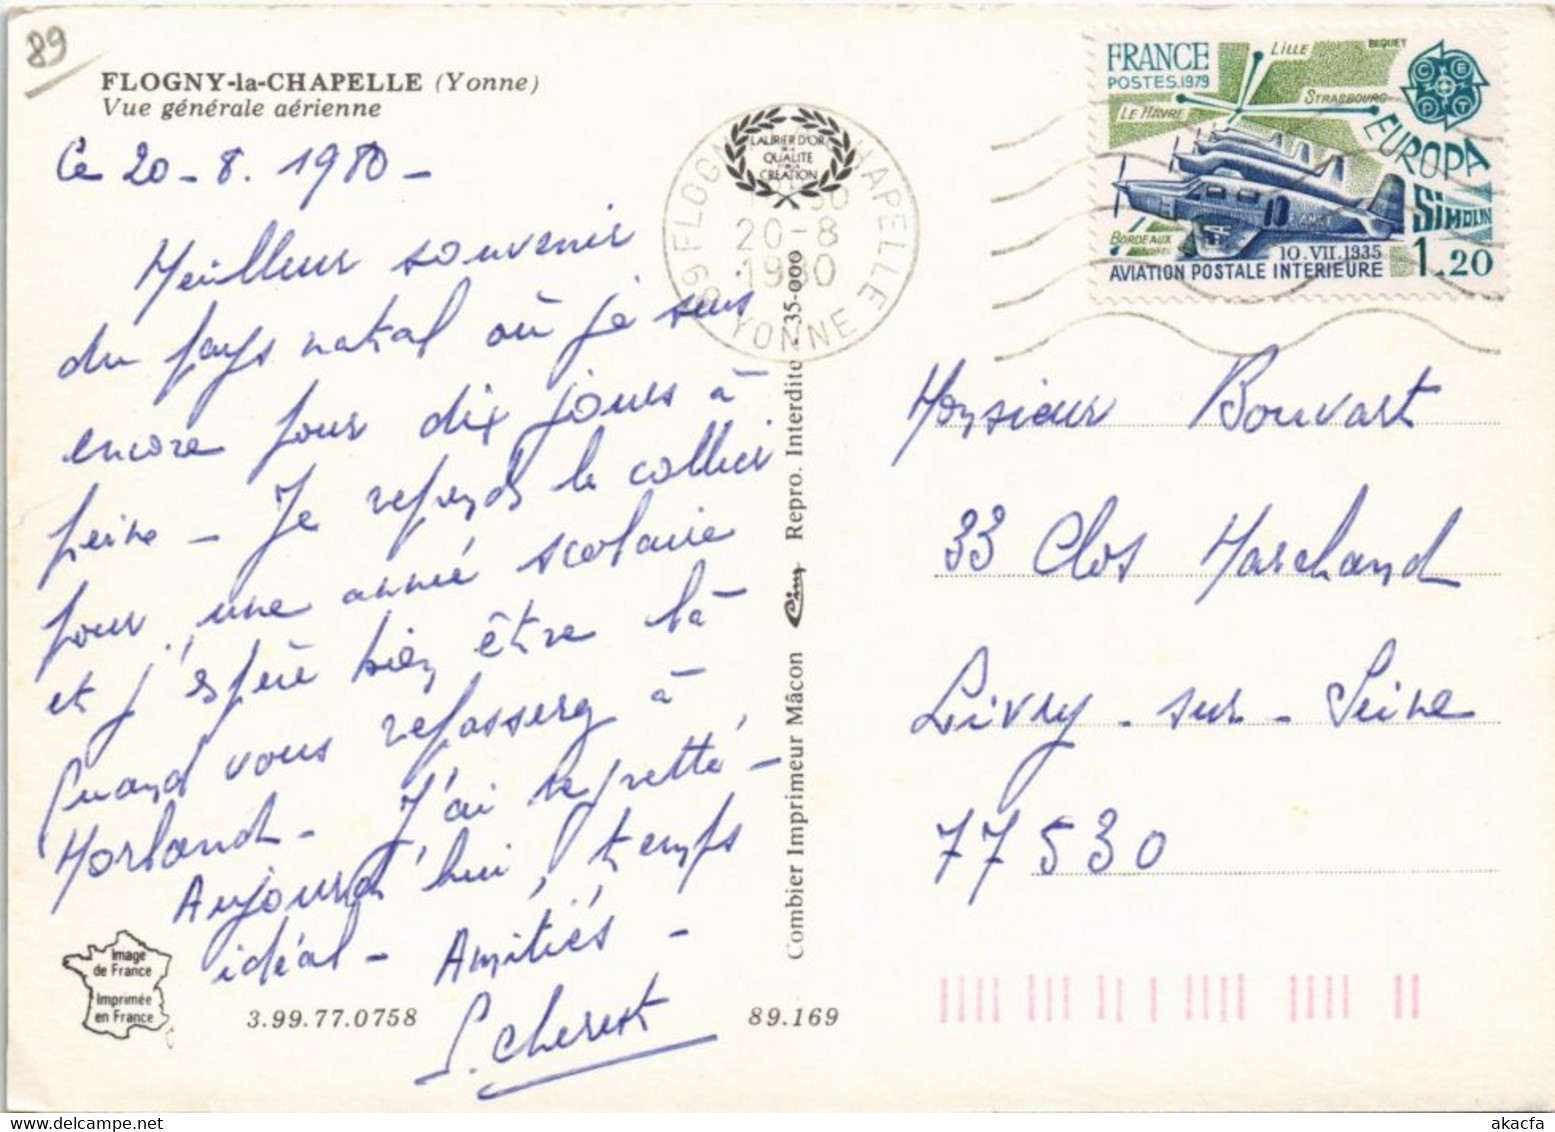 89
FLOGNY-la-CHAPELLE (Yonne)
Vue générale aérienne
Ce 20-8. 1980-
Meilleur souvenir
du pays natal où je suis
encore pour dix jours à
peine - Je reprends le collier
pour une année scolaire
et j'espère bien être là
quand vous repasserez à
Morland - J'ai regretté -
Aujourd'hui, temps
idéal - Amitiés -
Image
de France
Imprimée
en France
3.99.77.0758
89.169
LAURIER D'OR
DE LA
QUALITE
CREATION
89 FLOGNY CHAPELLE
20-8
1980
YONNE
Combier Imprimeur Mâcon Cim Repro. Interdite 35-000
FRANCE
POSTES.1979
LILLE
BEQUET
LE HAVRE
STRASBOURG
CEPT
EUROPA
SIMOUN
BORDEAUX
10.VII.1935
AVIATION POSTALE INTERIEURE
1.20
Monsieur Bouvart
33 Clos Marchand
Livry-sur-Seine
77530
akacfa